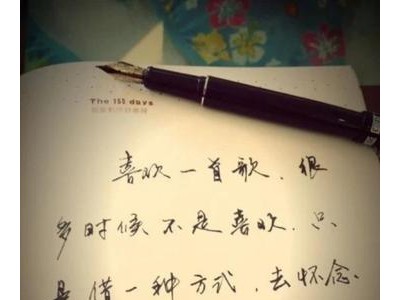 The 155 days
喜欢一首歌，很
多时候不是喜欢，只
是借一种方式，去怀念